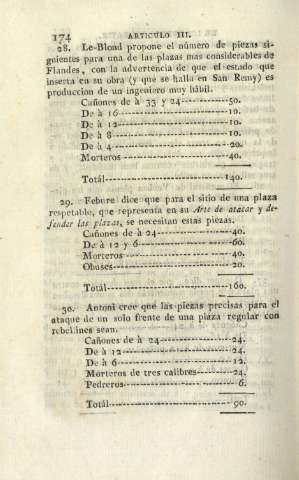 174 ARTICULO III.
28. Le-Blond propone el número de piezas si-
guientes para una de las plazas mas considerables de
Flandes, con la advertencia de que el estado que
inserta en su obra (y que se halla en San Remy) es
produccion de un ingeniero muy hábil.
Cañones de à 33 y 24-----------50.
De à 16-----------10.
De à 12-----------10.
De à 8-----------10.
De à 4-----------20.
Morteros-----------40.
Totál-----------140.
29. Febure dice que para el sitio de una plaza
respetable, que representa en su Arte de atacar y de-
fender las plazas, se necesitan estas piezas.
Cañones de à 24-----------40.
De à 12 y 6-----------60.
Morteros-----------40.
Obuses-----------20.
Totál-----------160.
30. Antoni cree que las piezas precisas para el
ataque de un solo frente de una plaza regular con
rebellines sean.
Cañones de à 24-----------24.
De à 12-----------24.
De à 6-----------12.
Morteros de tres calibres-----------24.
Pedreros-----------6.
Totál-----------90.